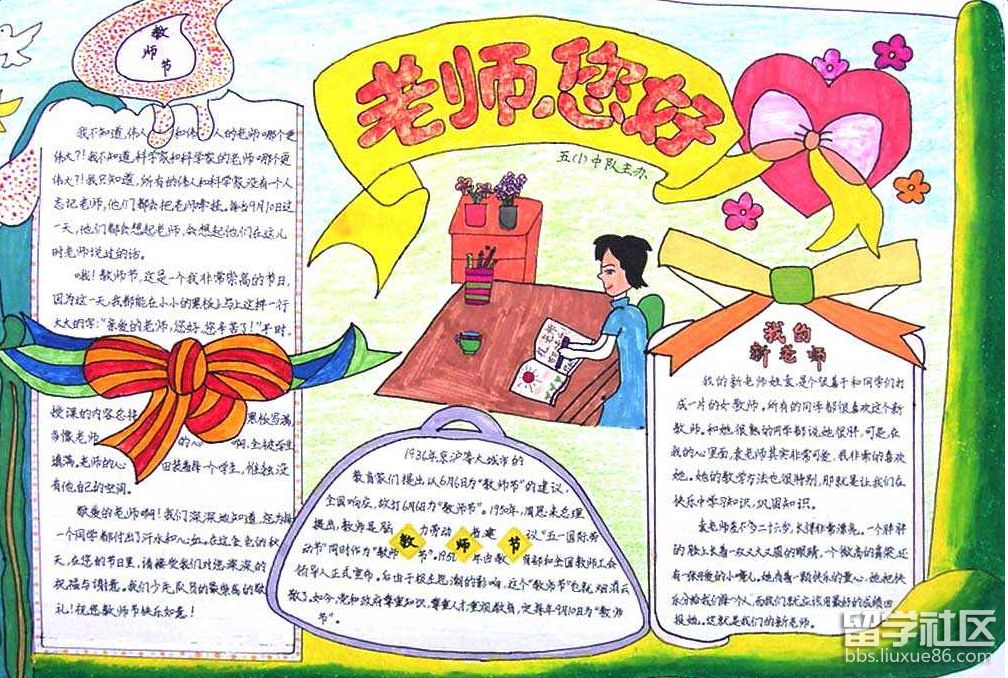 教
师
节
老师，您好
五(1)中队主办
我不知道，伟人 和伟 人的老师哪个更
伟大?!我不知道，科学家和科学家的老师哪个更
伟大?!我只知道，所有的伟人和科学家没有一个人
忘记老师，他们都会把老师牵挂。每当9月10日这
一天，他们都会想起老师，会想起他们在这儿
时老师说过的话。
哦！教师节，这是一个我非常崇高的节日，
因为这一天，我都能在小小的黑板上写上这样一行
大大的字："亲爱的老师，您好，您辛苦了！"
授课的内容总 黑板写满，
多像老师 的心 啊，全被学生
填满。老师的心 每一个学生，惟独没
有他自己的空间。
敬爱的老师啊！我们深深地知道，您为每
一个同学都付出了汗水和心血。在这金色的秋
天，在您的节日里，请接受我们对您深深的
祝福与谢意。我们少先队员的最崇高的敬
礼！祝您教师节快乐如意！
1931年京沪等大城市的
教育家们提出以6月6日为"教师节"的建议，
全国响应，改订6月6日为"教师节"。1950年，周恩来总理
提出，教师是脑 力劳动 者，建 议"五一国际劳
动节"同时作为"教师 节"。1951年由教 育部和全国教师工会
领导人正式宣布。后由于极左思潮的影响，这个"教师节"也就烟消云
散了。如今，党和政府尊重知识，尊重人才，重视教育，定每年9月10日为"教师
节"。
教 师 节
我的
新老师
我的新老师姓袁，是个很善于和同学们打
成一片的女教师。所有的同学都很喜欢这个新
教师。和她很熟的同学都说她很胖，可是，在
我的心里面，袁老师其实非常可爱，我非常的喜欢
她。她的教学方法也很特别，那就是让我们在
快乐中学习知识，巩固知识。
袁老师差不多二十六岁，长得非常漂亮。一个胖胖
的脸上长着一双又大又圆的眼睛，一个微高的鼻梁，还
有一张 的小嘴儿。她有着一颗快乐的童心。她把快
乐分给我们每个人，而我们就应该用最好的成绩回
报她。这就是我们的新老师。
留学社区
bbs.liuxue86.com